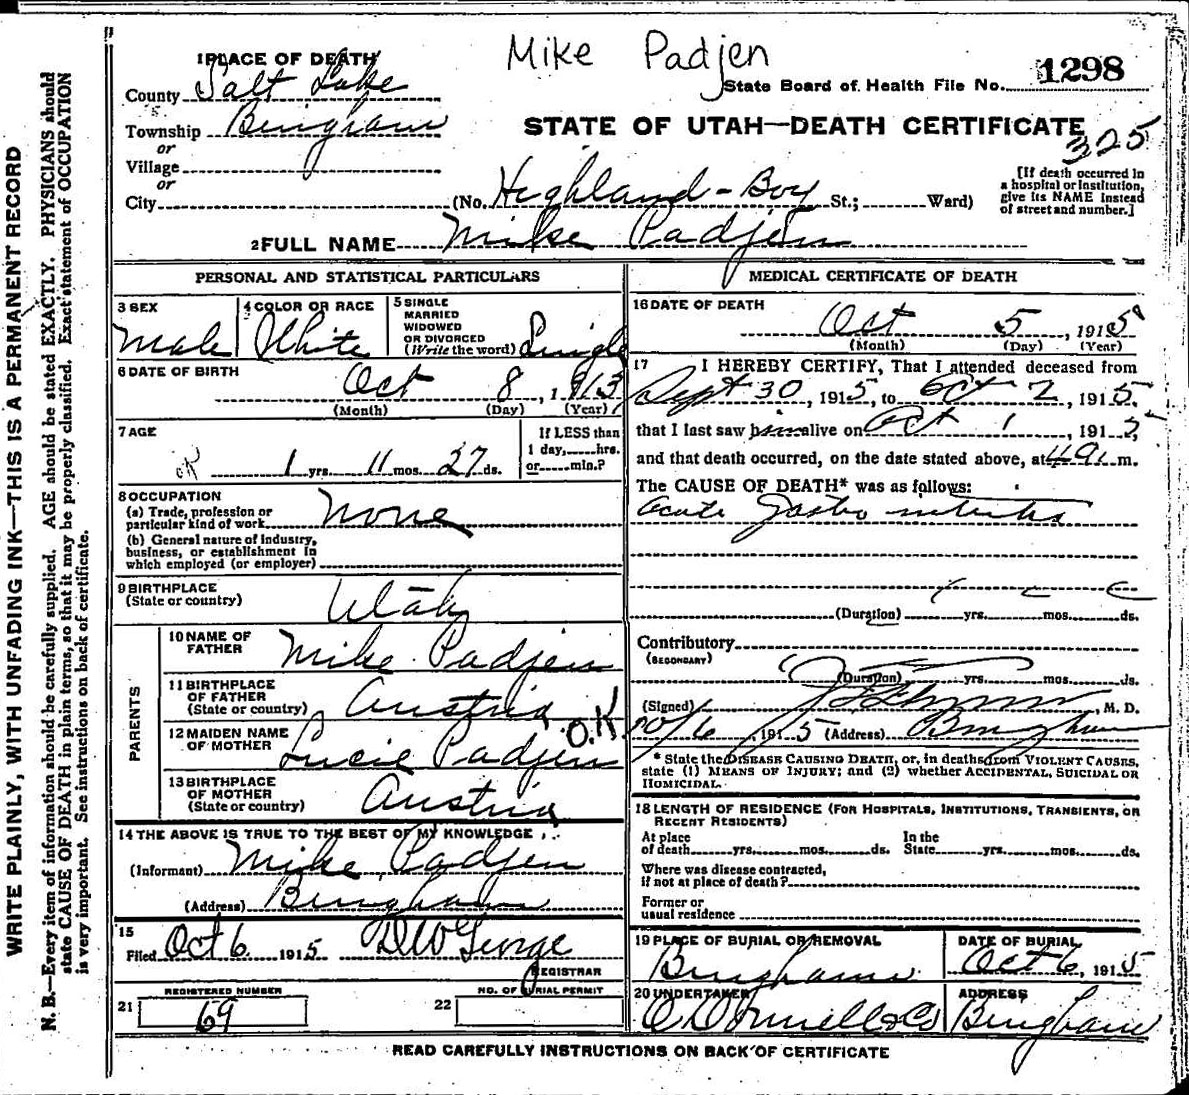 Mike Padjen
1 PLACE OF DEATH
County Salt Lake
State Board of Health File No. 1298
Township Bingham
STATE OF UTAH—DEATH CERTIFICATE
325
or
Village
or
City (No. Highland-Boy St.; Ward)
[If death occurred in
a hospital or institution,
give its NAME instead
of street and number.]
2 FULL NAME Mike Padjen
PERSONAL AND STATISTICAL PARTICULARS
3 SEX
Male
4 COLOR OR RACE
White
5 SINGLE
MARRIED
WIDOWED
OR DIVORCED
(Write the word) Single
6 DATE OF BIRTH
Oct 8, 1913
(Month) (Day) (Year)
7 AGE
OK 1 yrs. 11 mos. 27 ds.
If LESS than
1 day, hrs.
or min.?
8 OCCUPATION
(a) Trade, profession or
particular kind of work None
(b) General nature of industry,
business, or establishment in
which employed (or employer)
9 BIRTHPLACE
(State or country) Utah
PARENTS
10 NAME OF
FATHER Mike Padjen
11 BIRTHPLACE
OF FATHER
(State or country) Austria
12 MAIDEN NAME
OF MOTHER Lucie Padjen O.K
13 BIRTHPLACE
OF MOTHER
(State or country) Austria
14 THE ABOVE IS TRUE TO THE BEST OF MY KNOWLEDGE
(Informant) Mike Padjen
(Address) Bingham
15
Filed Oct 6 1915 D W George
REGISTRAR
REGISTERED NUMBER
21 69
NO. OF BURIAL PERMIT
22
MEDICAL CERTIFICATE OF DEATH
16 DATE OF DEATH
Oct 5, 1915
(Month) (Day) (Year)
17 I HEREBY CERTIFY, That I attended deceased from
Sept 30, 1915, to Oct 2, 1915.
that I last saw him alive on Oct 1, 1915,
and that death occurred, on the date stated above, at m.
The CAUSE OF DEATH* was as follows:
Acute Gastro
(Duration) yrs. mos. ds.
Contributory
(SECONDARY)
(Duration) yrs. mos. ds.
(Signed) , M. D.
10/6, 1915 (Address) Bingham
* State the DISEASE CAUSING DEATH, or, in deaths from VIOLENT CAUSES,
state (1) MEANS OF INJURY; and (2) whether ACCIDENTAL, SUICIDAL OR
HOMICIDAL.
18 LENGTH OF RESIDENCE (FOR HOSPITALS, INSTITUTIONS, TRANSIENTS, OR
RECENT RESIDENTS)
At place
of death yrs. mos. ds.
In the
State yrs. mos. ds.
Where was disease contracted,
if not at place of death?
Former or
usual residence
19 PLACE OF BURIAL OR REMOVAL
Bingham
DATE OF BURIAL
Oct 6, 1915
20 UNDERTAKER
O'Donnell & Co
ADDRESS
Bingham
READ CAREFULLY INSTRUCTIONS ON BACK OF CERTIFICATE
WRITE PLAINLY, WITH UNFADING INK—THIS IS A PERMANENT RECORD
N. B.—Every item of information should be carefully supplied. AGE should be stated EXACTLY. PHYSICIANS should
state CAUSE OF DEATH in plain terms, so that it may be properly classified. Exact statement of OCCUPATION
is very important. See instructions on back of certificate.